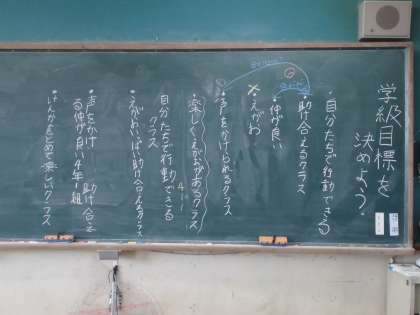 学級目標を
決めよう。
・自分たちで行動できる
・助け合えるクラス
・仲が良い
・えがお
・声をかけられるクラス
・楽しくえがおがあるクラス
4-1
自分たちで行動できる
クラス
・えがおいっぱい助け合えるクラス
・声をかけ 助け合え
る仲が良い4年1組
・けんかをとめて楽しいクラス